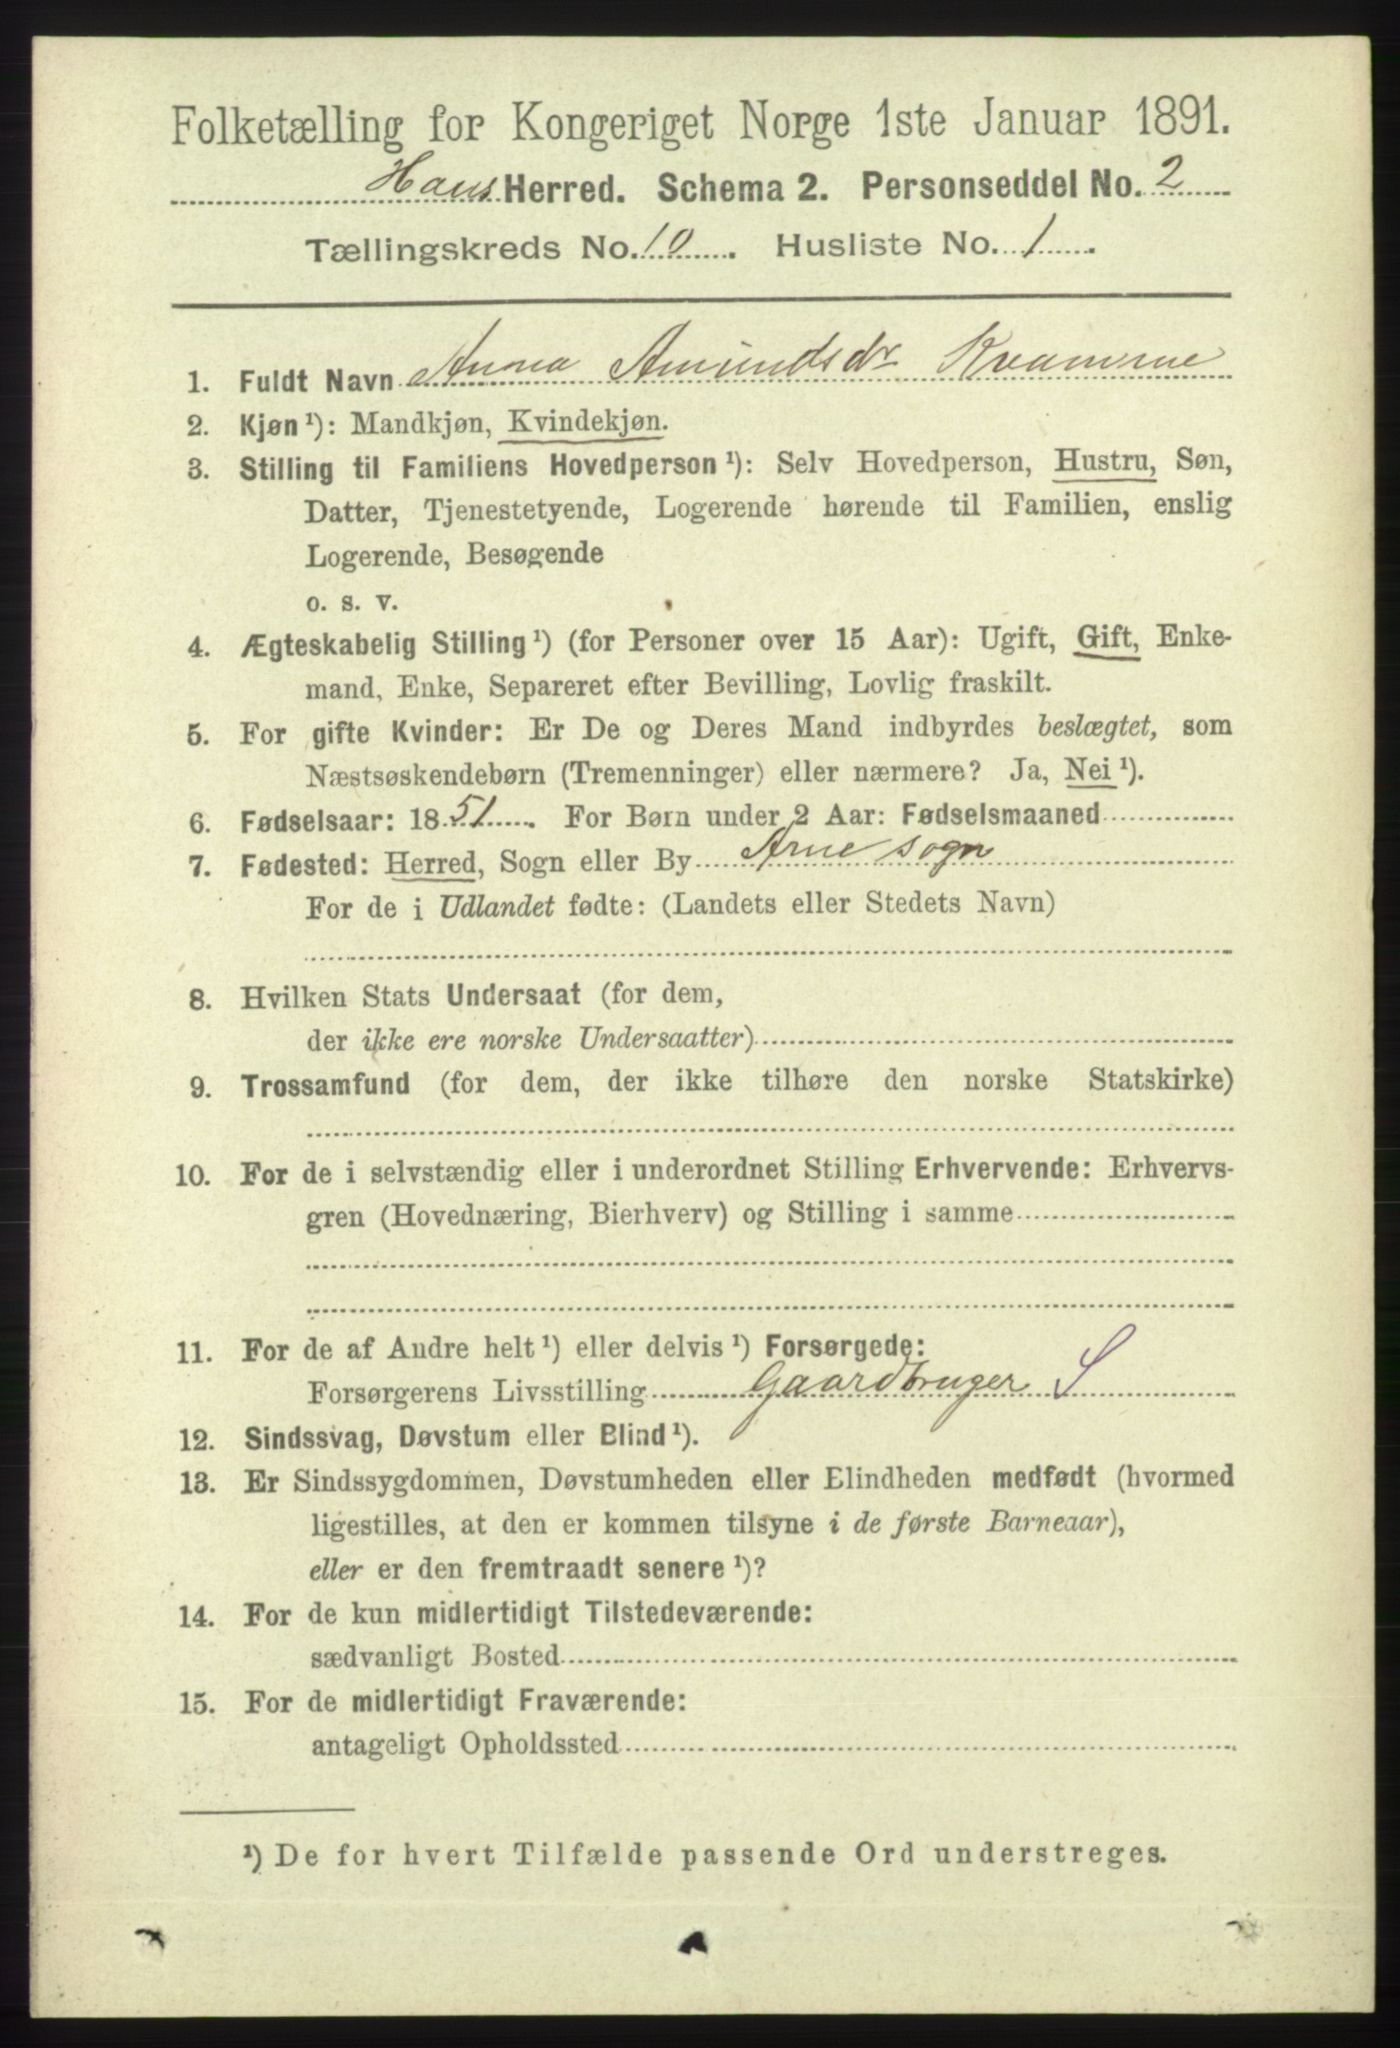 Folketælling for Kongeriget Norge 1ste Januar 1891.
Haus Herred. Schema 2. Personseddel No. 2
Tællingskreds No. 10. Husliste No. 1.
1. Fuldt Navn Anna Amundsdr Kvamme
2. Kjøn¹): Mandkjøn, Kvindekjøn.
3. Stilling til Familiens Hovedperson¹): Selv Hovedperson, Hustru, Søn,
Datter, Tjenestetyende, Logerende hørende til Familien, enslig
Logerende, Besøgende
o. s. v.
4. Ægteskabelig Stilling¹) (for Personer over 15 Aar): Ugift, Gift, Enke-
mand, Enke, Separeret efter Bevilling, Lovlig fraskilt.
5. For gifte Kvinder: Er De og Deres Mand indbyrdes beslægtet, som
Næstsøskendebørn (Tremenninger) eller nærmere? Ja, Nei¹).
6. Fødselsaar: 1851. For Børn under 2 Aar: Fødselsmaaned
7. Fødested: Herred, Sogn eller By Arne sogn
For de i Udlandet fødte: (Landets eller Stedets Navn)
8. Hvilken Stats Undersaat (for dem,
der ikke ere norske Undersaatter)
9. Trossamfund (for dem, der ikke tilhøre den norske Statskirke)
10. For de i selvstændig eller i underordnet Stilling Erhvervende: Erhvervs-
gren (Hovednæring, Bierhverv) og Stilling i samme
11. For de af Andre helt¹) eller delvis¹) Forsørgede:
Forsørgerens Livsstilling Gaardbruger S
12. Sindssvag, Døvstum eller Blind¹).
13. Er Sindssygdommen, Døvstumheden eller Blindheden medfødt (hvormed
ligestilles, at den er kommen tilsyne i de første Barneaar),
eller er den fremtraadt senere¹)?
14. For de kun midlertidigt Tilstedeværende:
sædvanligt Bosted
15. For de midlertidigt Fraværende:
antageligt Opholdssted
¹) De for hvert Tilfælde passende Ord understreges.